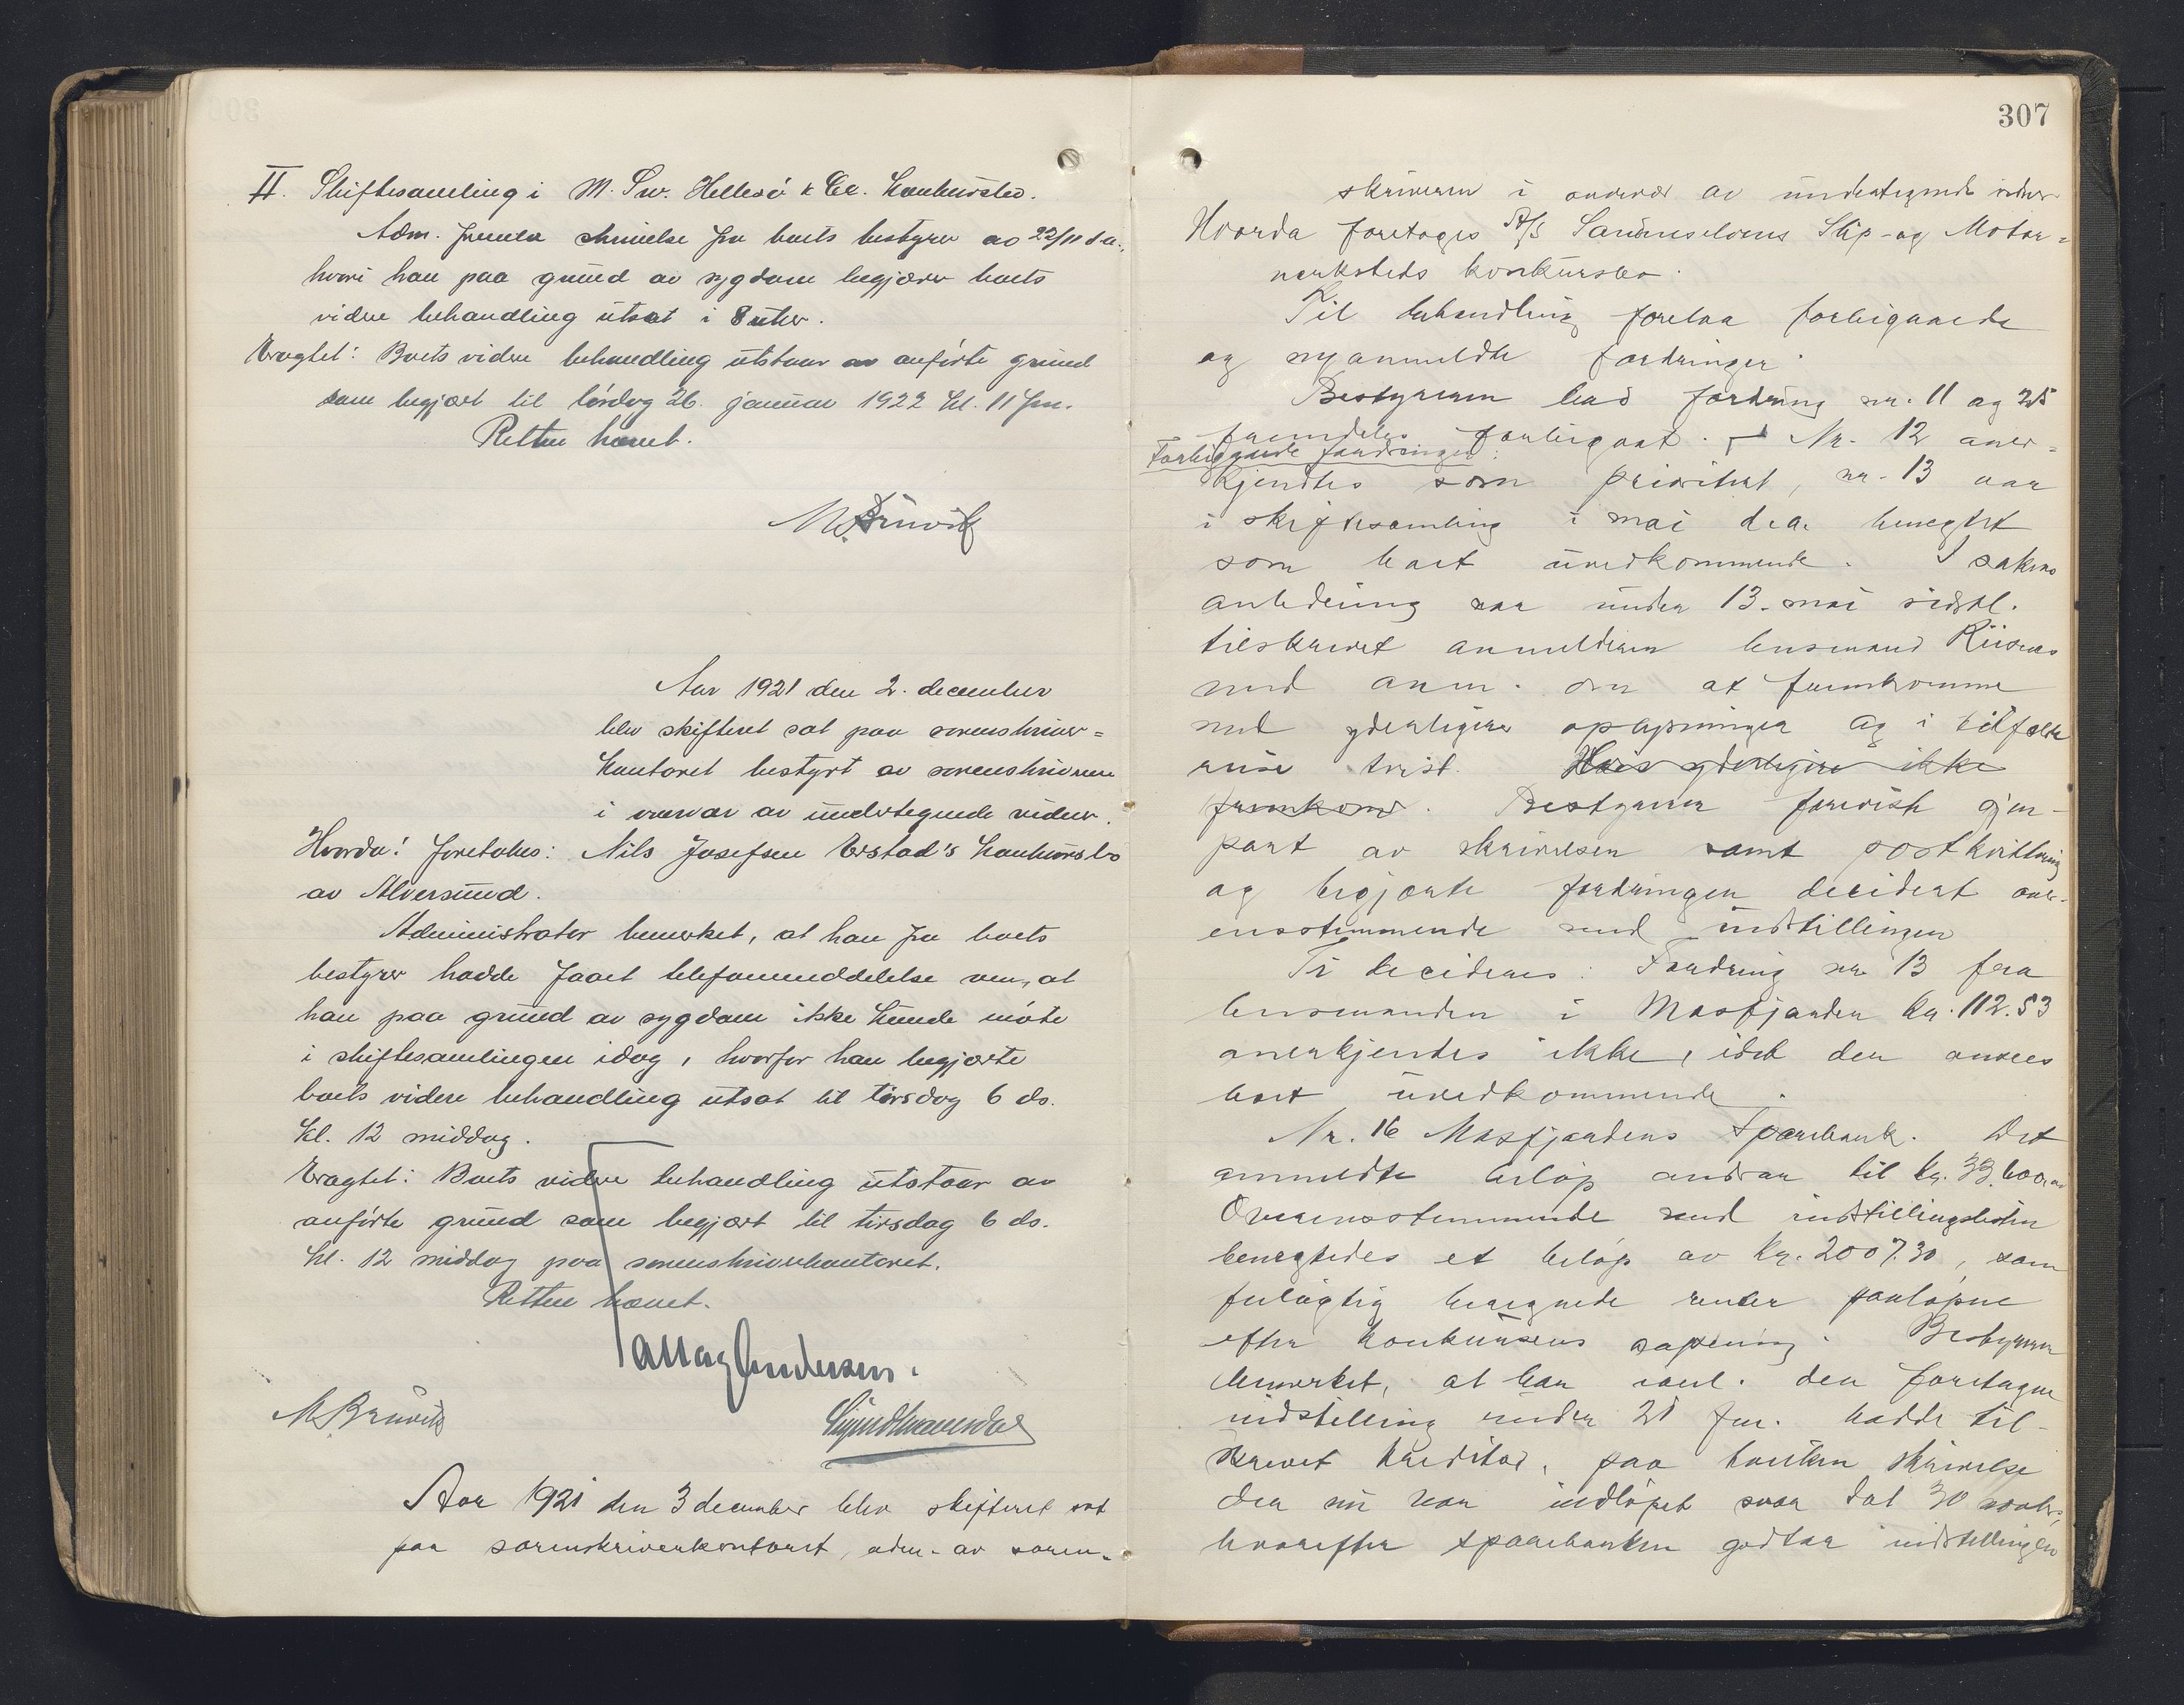 II. Skiftesamling i M. Sw. Hellesö & Co. konkursbo.
Adm. fremla skrivelse fra boets bestyrer av 22/11 d.a.,
hvori han paa grund av sygdom begjærer boets
videre behandling utsat i 8 uker.
Eragtet: Boets videre behandling utstaar av anførte grund
som begjært til lördag 26. januar 1922 kl. 11 fm.
Retten hævet.
M. Bruvik
Aar 1921 den 2. december
blev skifteret sat paa sorenskriver=
kontoret bestyrt av sorenskriveren
i nærvær av undertegnede vidner.
Hvorda: foretokes: Nils Josefsen Erstad's konkursbo
av Alversund.
Administrator bemerket, at han fra boets
bestyrer hadde faaet telefonmeddelelse om, at
han paa grund av sygdom ikke kunde möte
i skiftesamlingen idag, hvorfor han begjærte
boets videre behandling utsat til tirsdag 6 ds.
kl. 12 middag.
Eragtet: Boets videre behandling utstaar av
anførte grund som begjært til tirsdag 6 ds.
kl. 12 middag paa sorenskriverkontoret.
Retten hævet.
M. Bruvik
Aar 1921 den 3 december blev skifteret sat
paa sorenskriverkontoret, adm. av soren-
307
skriveren i nærvær av undertegnede vidner
Hvorda foretoges A/S Skip- og Motor=
verksteds konkursbo.
Til behandling forelaa forbigaaede
og nyanmeldte fordringer.
Bestyreren bad fordring nr. 11 og 25
fremdeles forbigaat. Nr. 12 aner=
Forbigaaede fordringer:
kjendtes som prioritert, nr. 13 var
i skiftesamling i mai d.a. benegtet
som boet uvedkommende. I sakens
anledning var under 13. mai sidstl.
tilskrevet anmelderen lensmand
med anm. om at fremkomme
med yderligere oplysninger og i tilfælde
reise tvist. Hvis yderligere ikke
fremkom. Bestyreren foreviste gjen-
part av skrivelsen samt postkvittering
og begjærte fordringen decidert over-
ensstemmende med indstillingen
Ti decideres: Fordring nr. 13 fra
lensmanden i Masfjorden kr. 112.53
anerkjendes ikke, idet den ansees
boet uvedkommende.
Nr. 16 Masfjordens Sparebank. Det
anmeldte belöp andrar til kr. 33.600.00
Overensstemmende med indstillingslisten
benegtedes et belöp av kr. 2007.30, som
feilagtig beregnede renter paalöpne
efter konkursens aapning. Bestyreren
bemerket, at han ianl. den foretagne
indstilling under 21 hadde til-
skrevet kreditor, paa hvilken skrivelse
der nu var indlöpet svar dat 30 novbr.,
hvorefter sparebanken godtar indstillingen